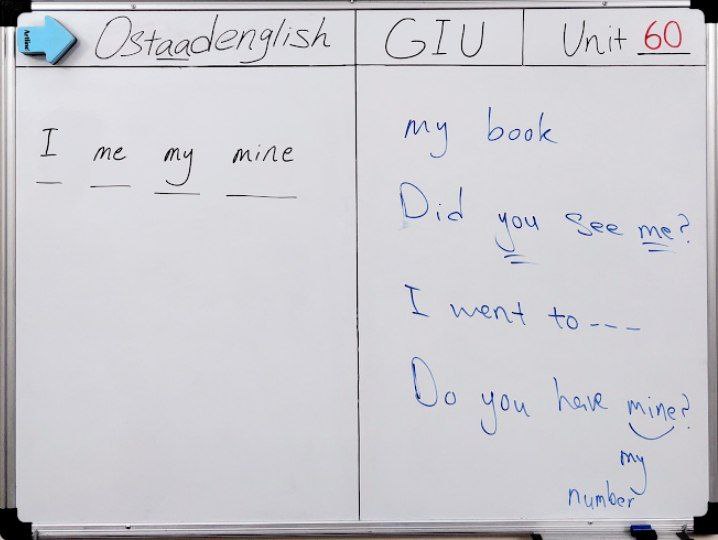 Ostaadenglish
GIU
Unit 60
I me my mine
my book
Did you see me?
I went to ---
Do you have mine?
my
number